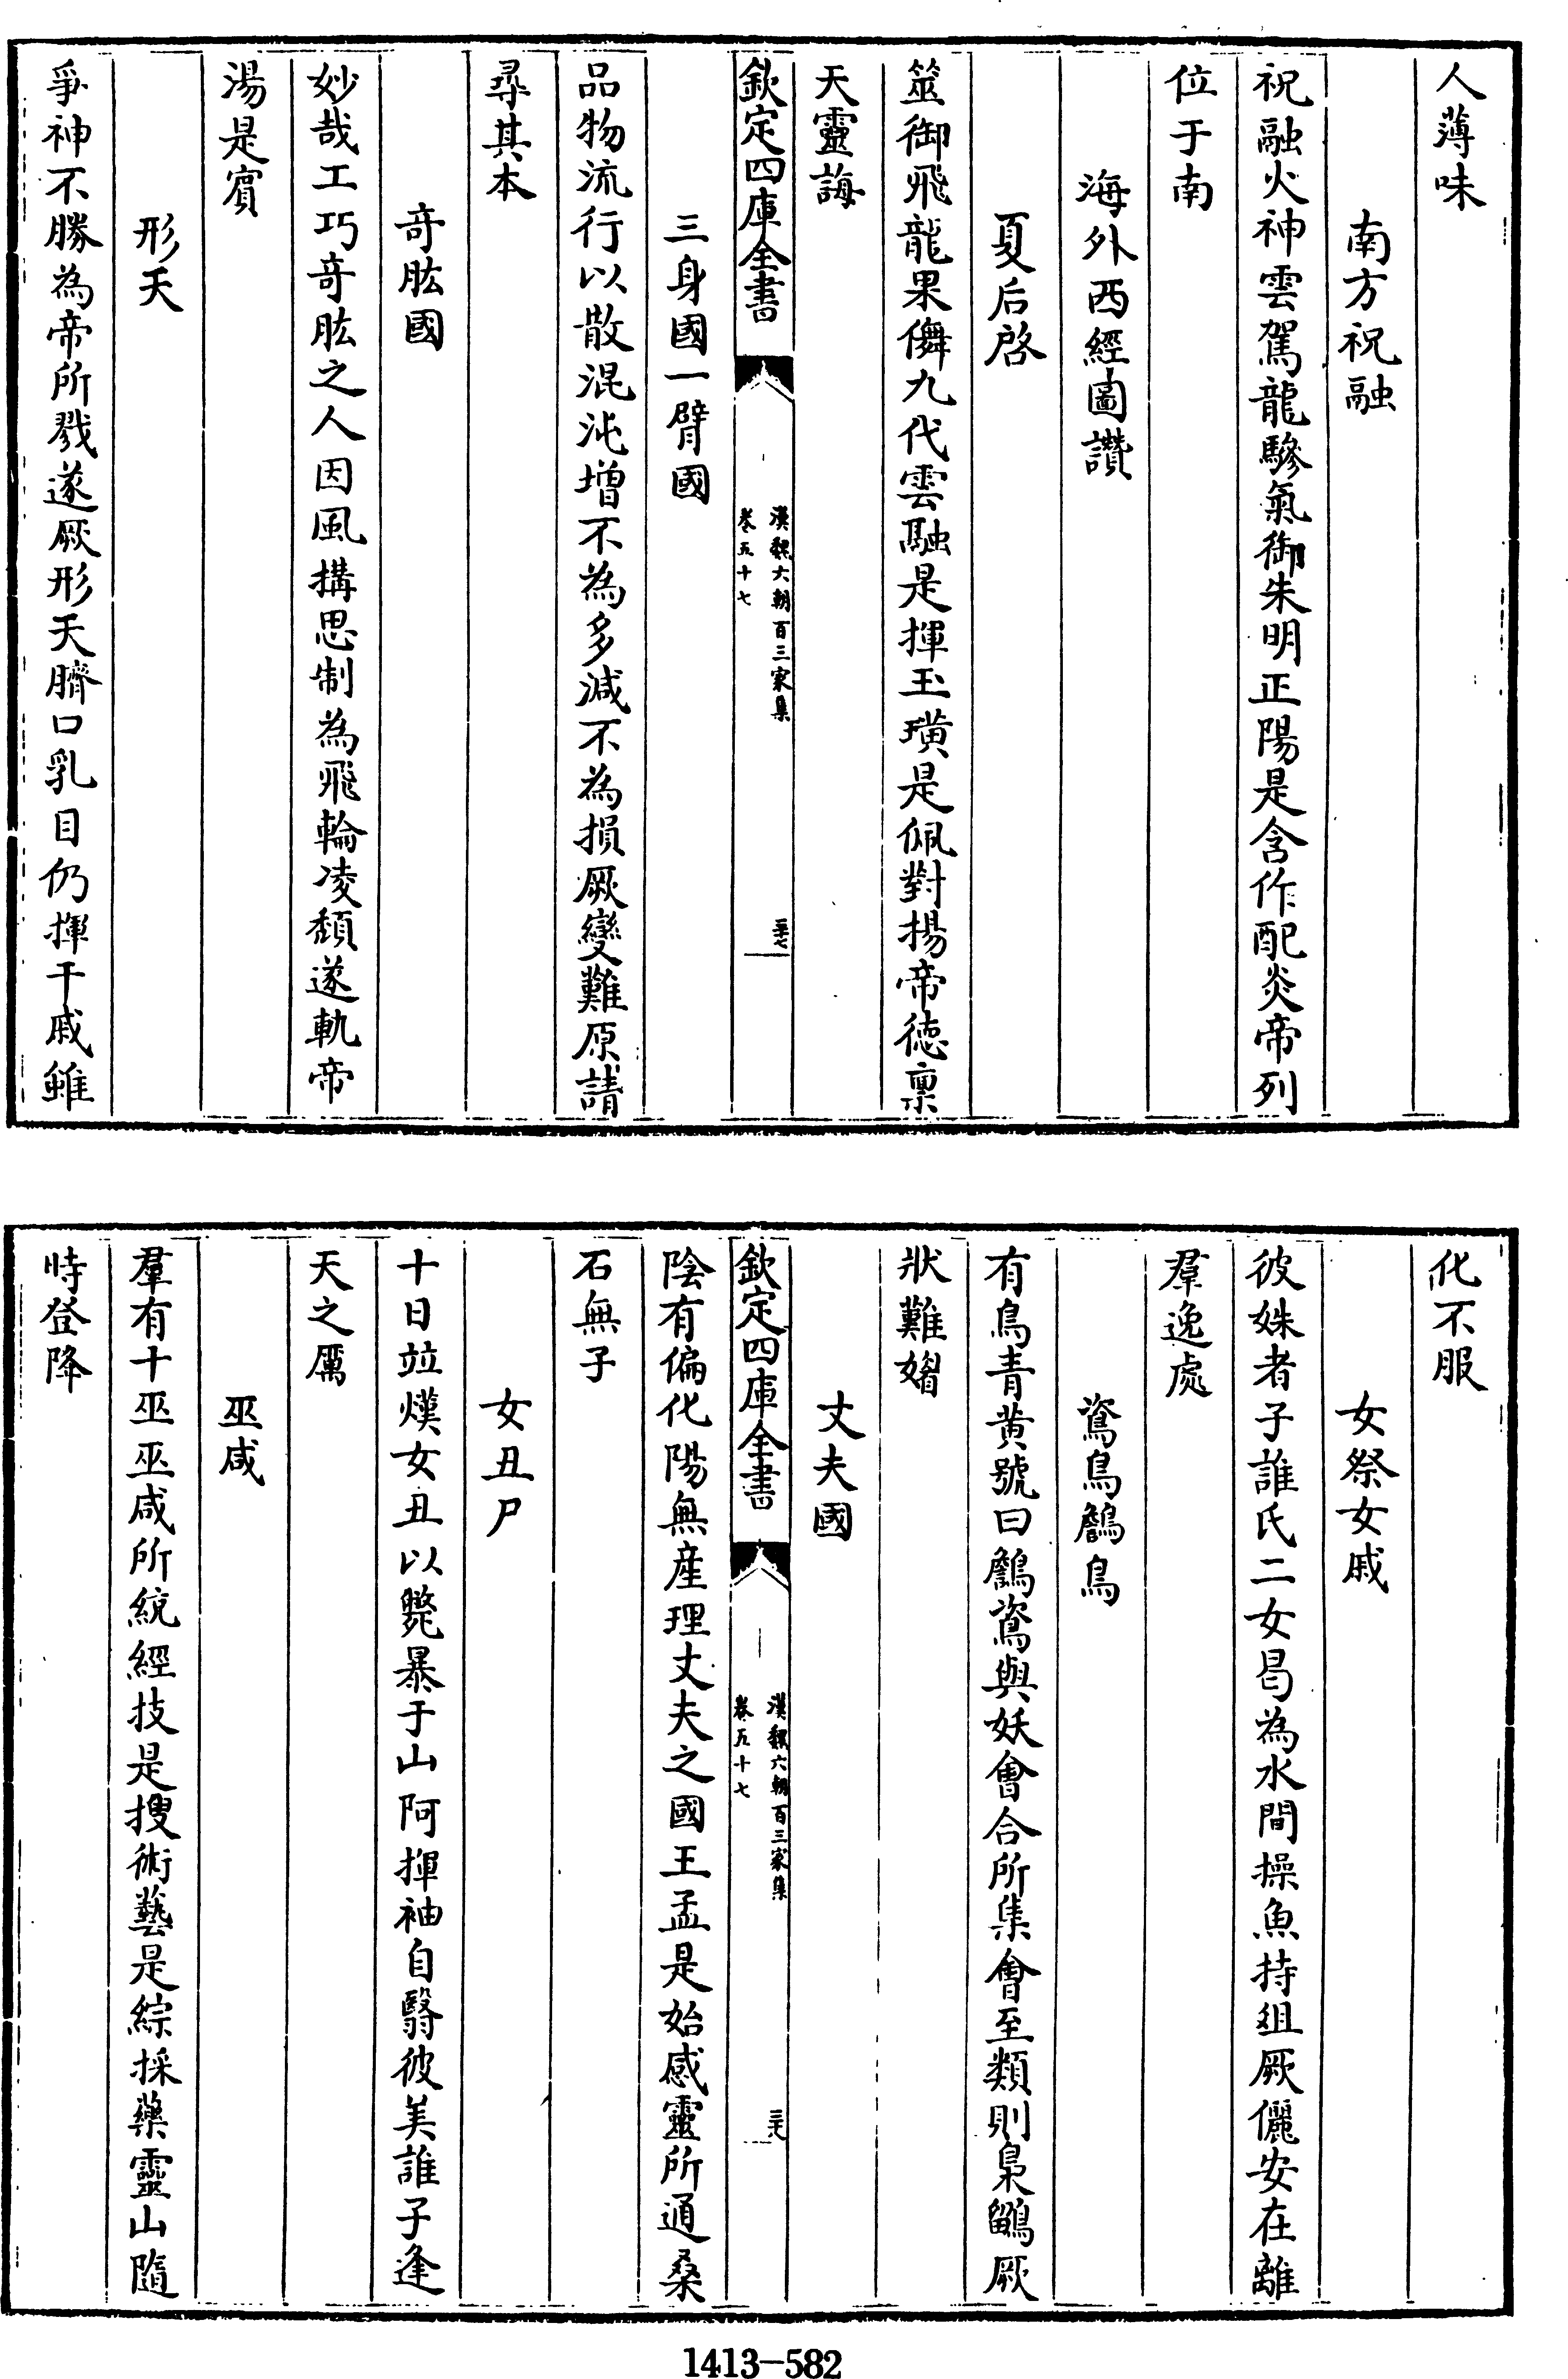 人薄味
南方祝融
祝融火神雲駕龍驂氣御朱明正陽是含作配炎帝列
位于南
海外西經圖讚
夏后啓
筮御飛龍果儛九代雲融是揮玉璜是佩對揚帝德禀
天靈誨
欽定四庫全書
漢魏六朝百三家集
卷五十七
三身國一臂國
品物流行以散混沌增不為多減不為損厥變難原請
尋其本
奇肱國
妙哉工巧奇肱之人因風搆思制為飛輪凌頹遂軌帝
湯是賓
形天
爭神不勝為帝所戮遂厥形天臍口乳目仍揮干戚雖
化不服
女祭女戚
彼姝者子誰氏二女曷為水間操魚持俎厥儷安在離
羣逸處
鴢鳥鶬鳥
有鳥青黃號曰鶬鴢與妖會合所集會至類則梟鶹厥
狀難媚
丈夫國
欽定四庫全書
漢魏六朝百三家集
卷五十七
陰有偏化陽無產理丈夫之國王孟是始感靈所通桑
石無子
女丑尸
十日竝熯女丑以斃暴于山阿揮袖自翳彼美誰子逢
天之厲
巫咸
羣有十巫巫咸所統經技是搜術藝是綜採藥靈山隨
時登降
1413-582